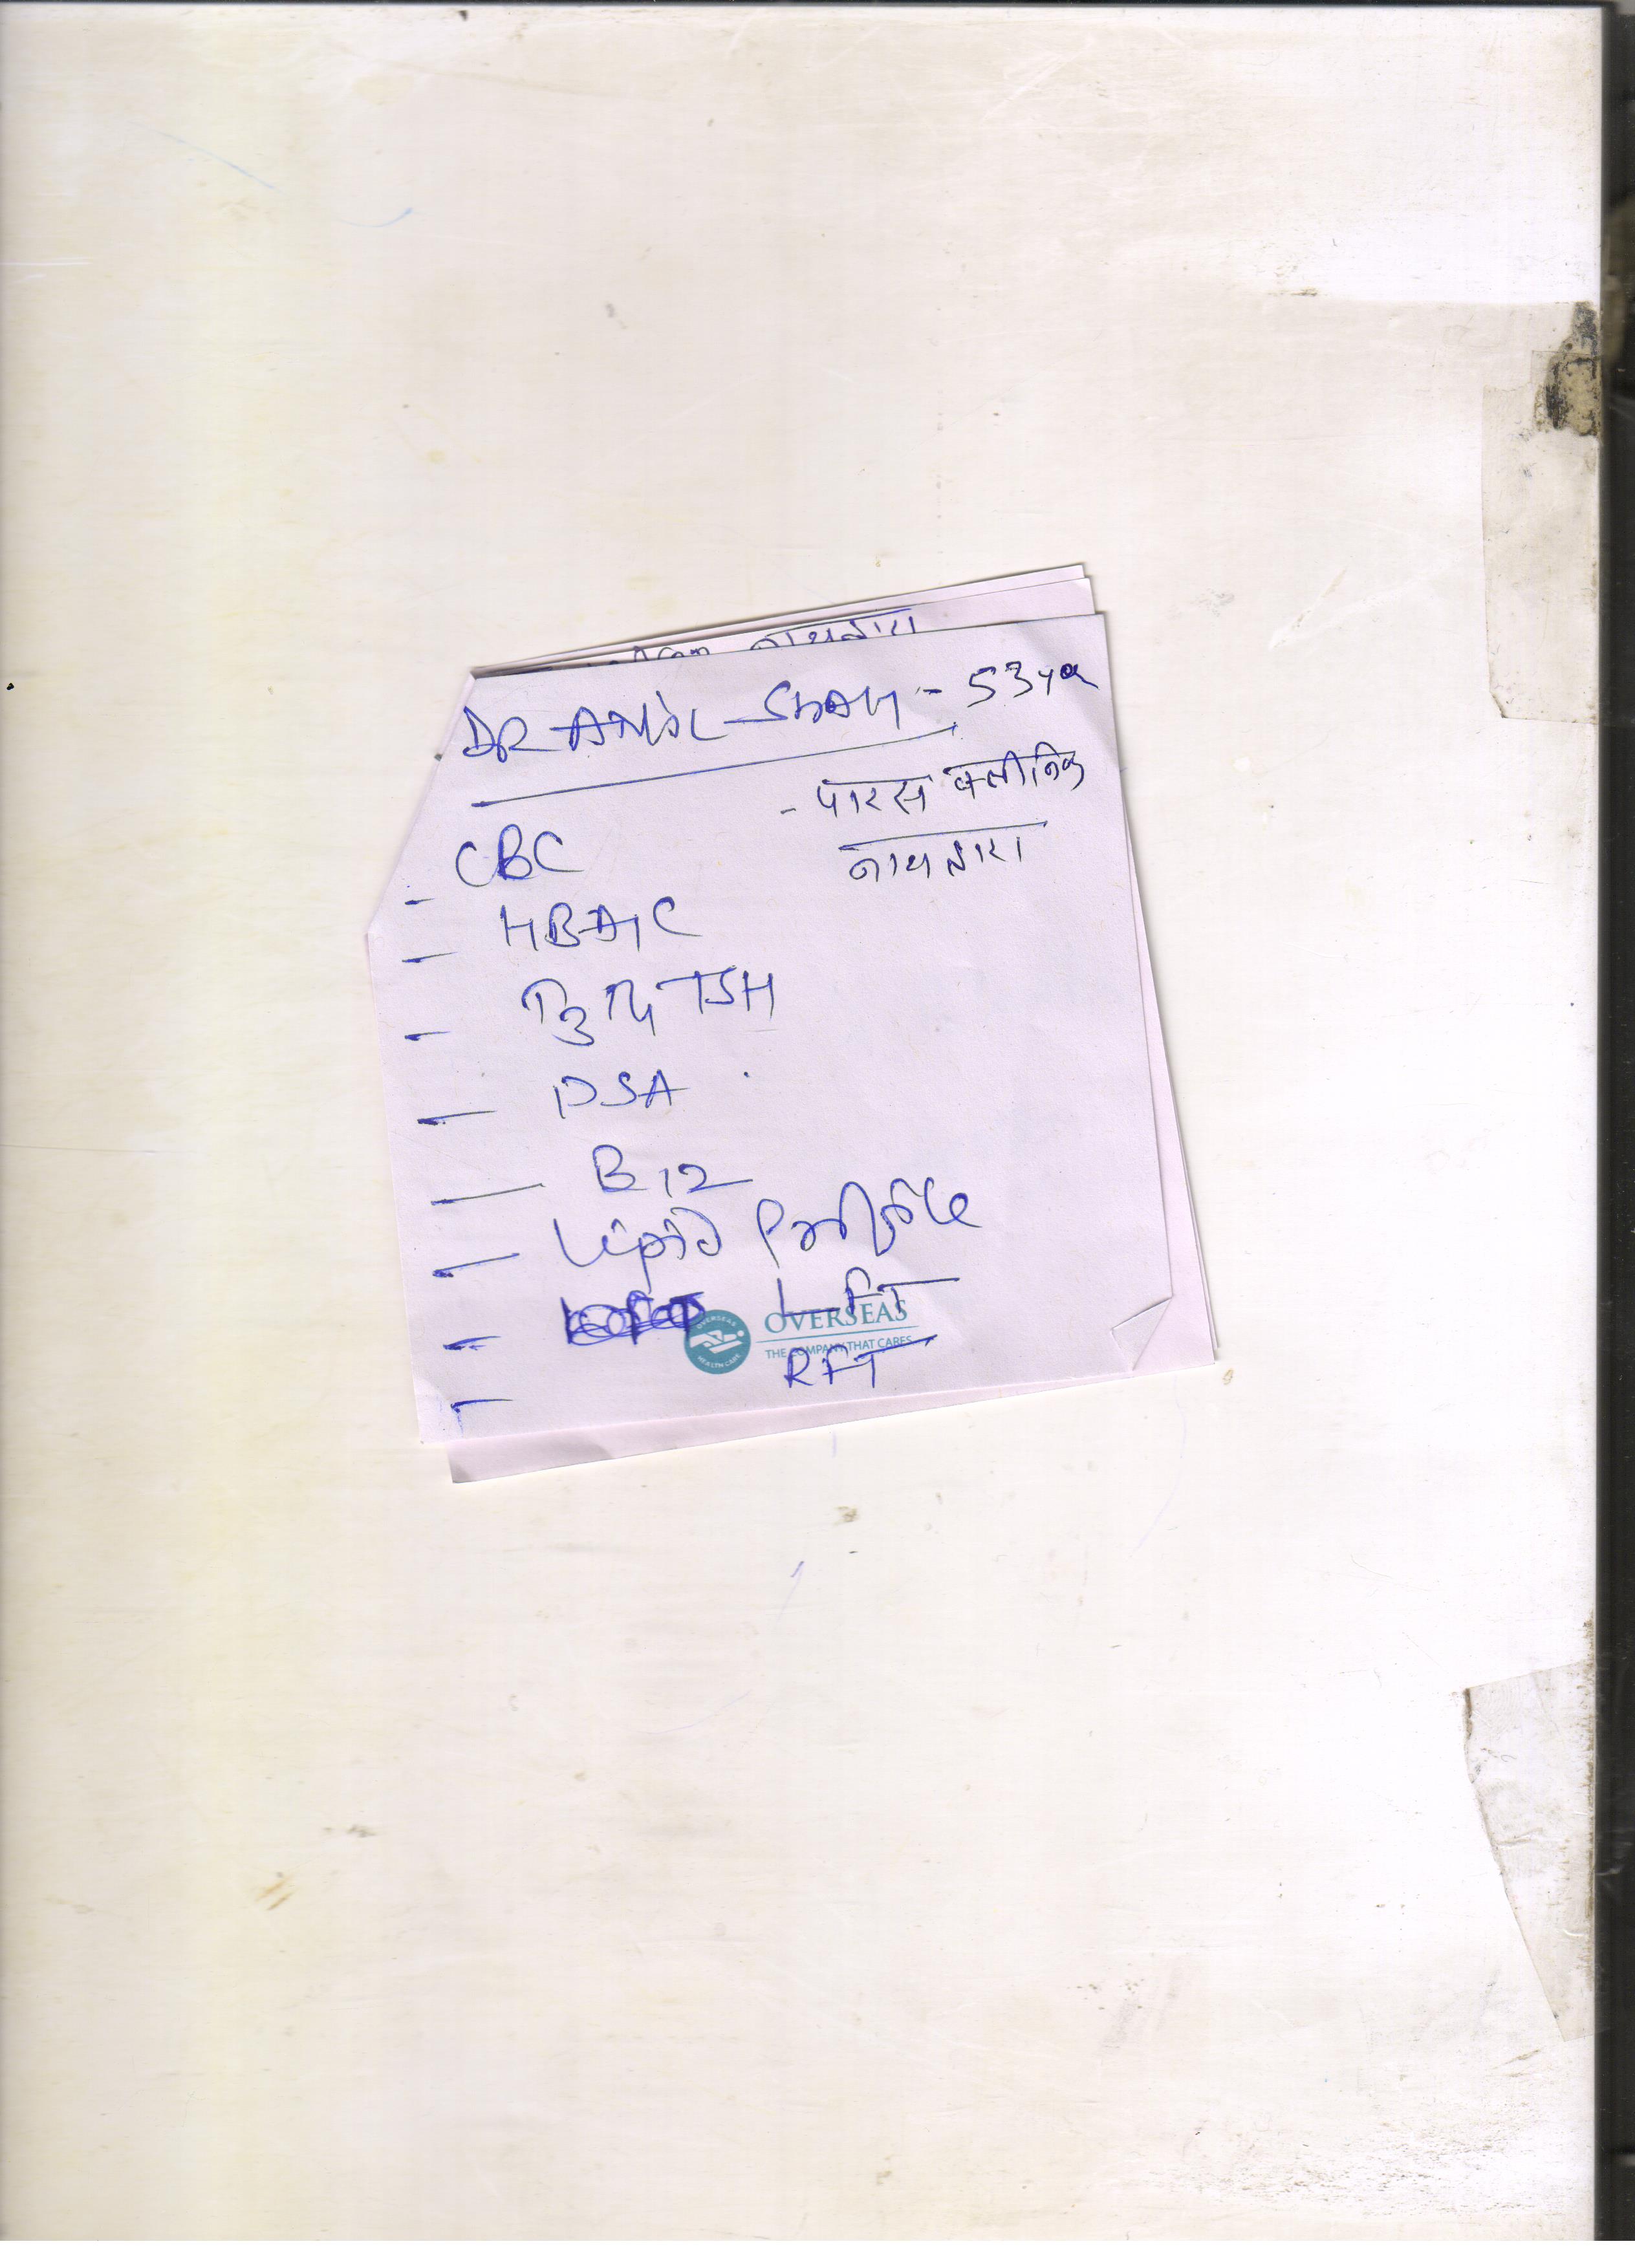 नाथद्वारा
DR ANIL SHAH - 53 YR
- पारस क्लीनिक
नाथद्वारा
- CBC
- HBA1C
- T3 T4 TSH
- PSA
- B12
- Lipid Profile
- LFT
- RFT
OVERSEAS
THE COMPANY THAT CARES
OVERSEAS
HEALTH CARE